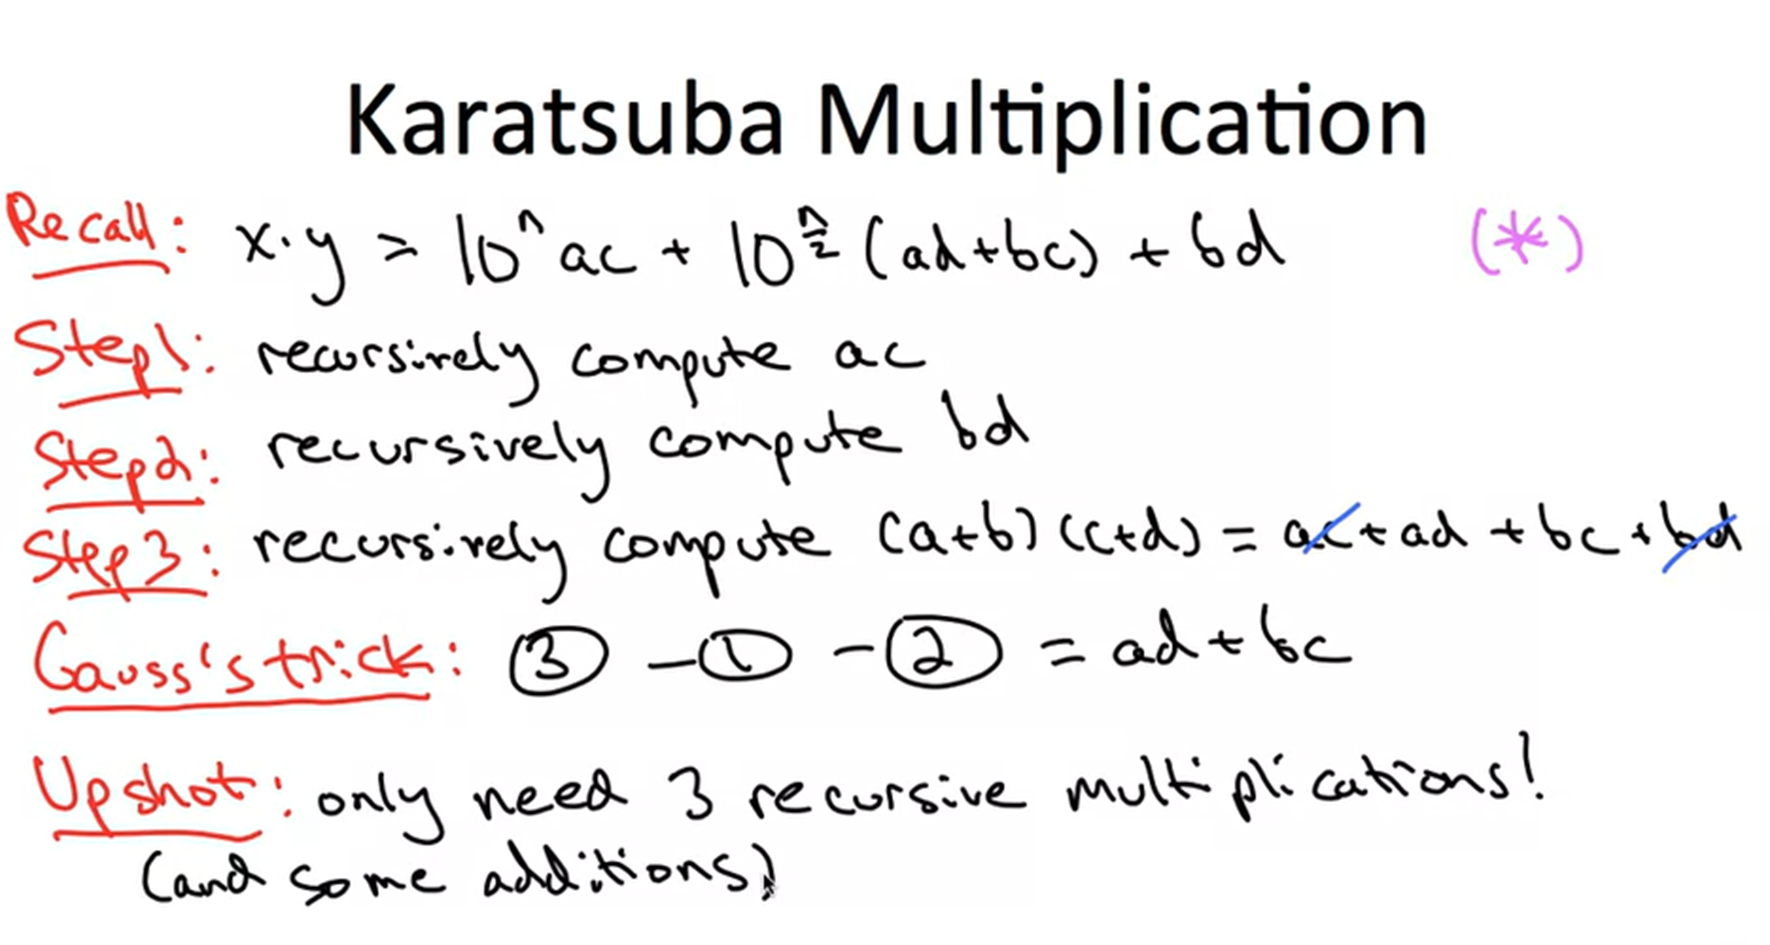 Karatsuba Multiplication
Recall: x·y = 10^n ac + 10^(n/2) (ad+bc) + bd (*)
Step1: recursively compute ac
Step2: recursively compute bd
Step3: recursively compute (a+b)(c+d) = ac + ad + bc + bd
Gauss's trick: ③ - ① - ② = ad + bc
Upshot: only need 3 recursive multiplications!
(and some additions)